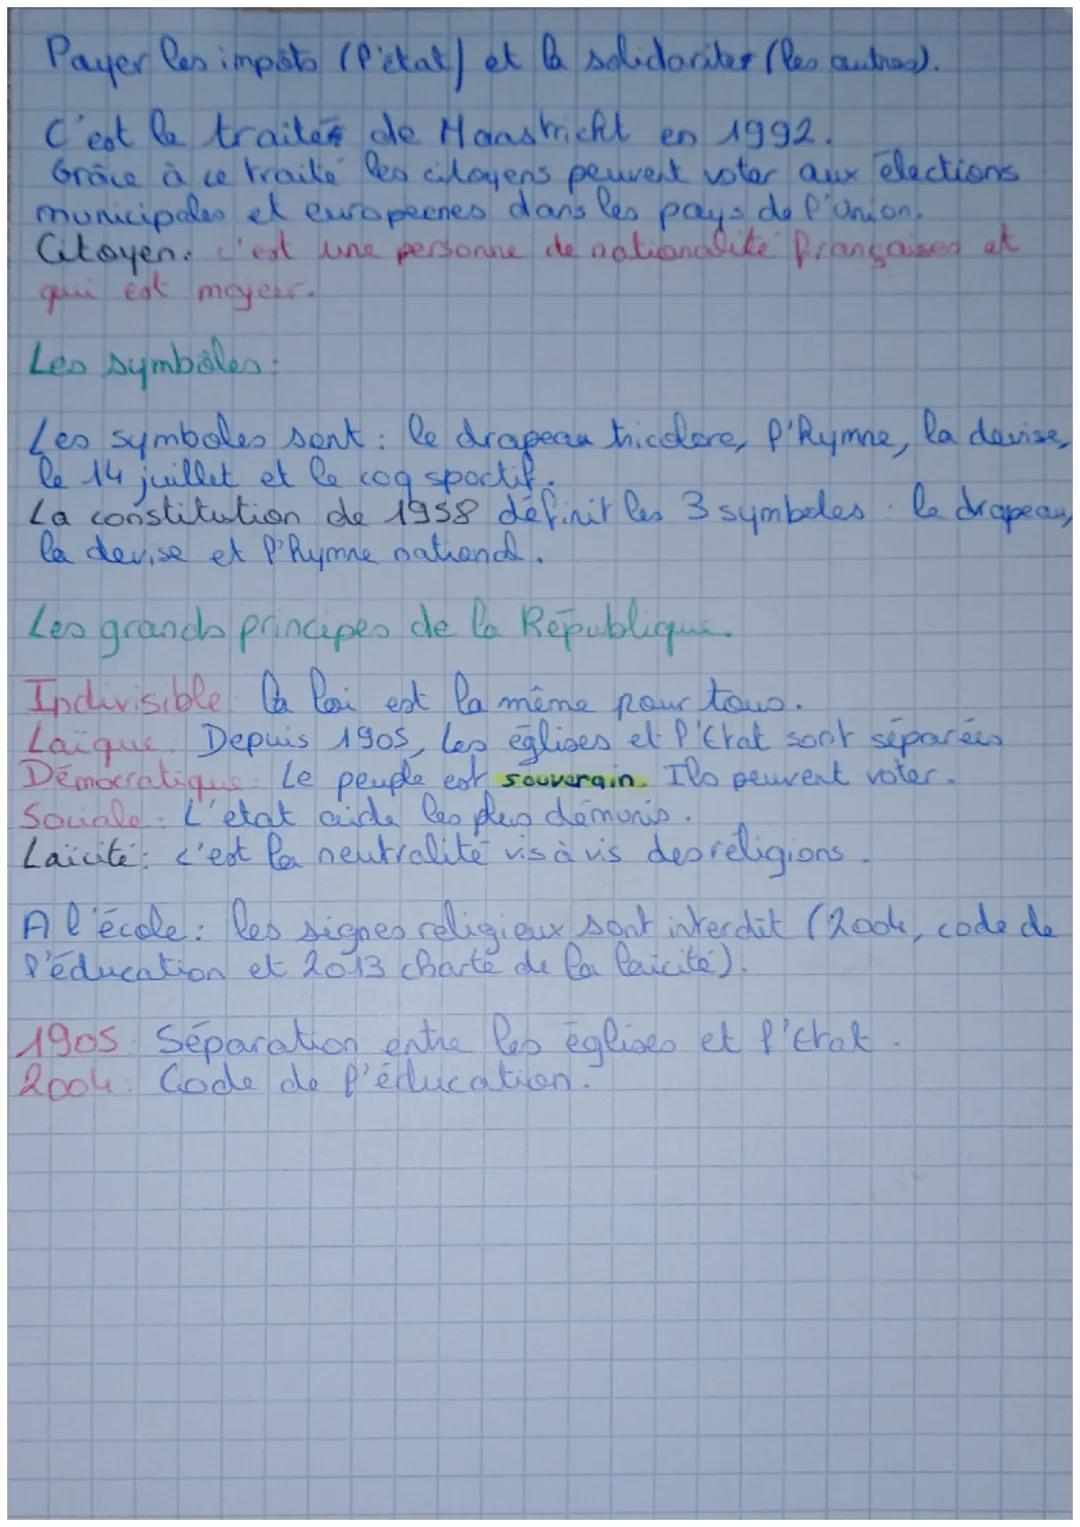 Payer les impôts (l'état) et la solidariter (les autres).
C'est le traités de Maastricht en 1992.
Grâce à ce traité les citoyens peuvent voter aux élections
municipales et europeenes dans les pays de l'Union.
Citoyen: c'est une personne de nationalité françaises et
qui est mayeur.
Les symbôles:
Les symboles sont: le drapeau tricolore, l'hymne, la devise,
le 14 juillet et le coq sportif.
La constitution de 1958 définit les 3 symboles: le drapeau,
la devise et l'hymne national.
Les grands principes de la République.
Indivisible: la loi est la même pour tous.
Laïque: Depuis 1905, les églises et l'Etat sont séparées
Démocratique: Le peuple est souverain. Ils peuvent voter.
Sociale: L'état aide les plus démunis.
Laïcité: c'est la neutralité vis à vis des réligions.
A l'école: les signes religieux sont interdit (2004, code de
l'éducation et 2013 charte de la laicité).
1905: Séparation entre les églises et l'Etat.
2004: Code de l'éducation.